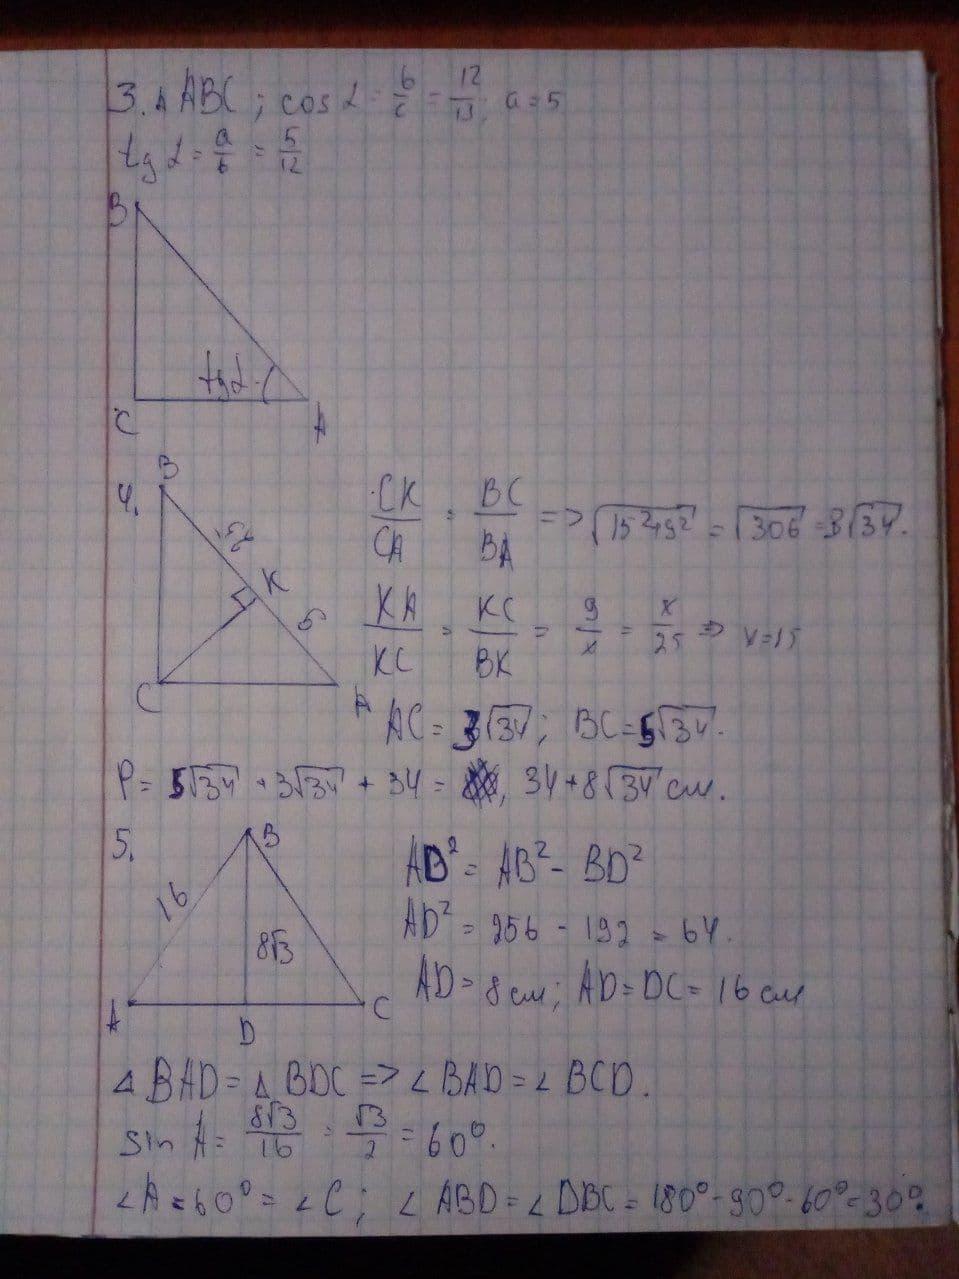 3. △ ABC ; cos α = b/c = 12/13; a = 5
tg α = a/b = 5/12
B
tg α
C
A
4.
B
25
K
9
C
A
CK/CA = BC/BA => √15²+9² = √306 = 3√34.
KA/KC = KC/BK = 9/x = x/25 => x=15
AC = 3√34; BC = 5√34.
P = 5√34 + 3√34 + 34 = 34 + 8√34 см.
5.
B
16
8√3
A
D
C
AD² = AB² - BD²
AD² = 256 - 192 = 64.
AD = 8 см; AD = DC = 16 см
△ BAD = △ BDC => ∠ BAD = ∠ BCD.
sin A = 8√3/16 = √3/2 = 60°.
∠ A = 60° = ∠ C; ∠ ABD = ∠ DBC = 180° - 90° - 60° = 30°.